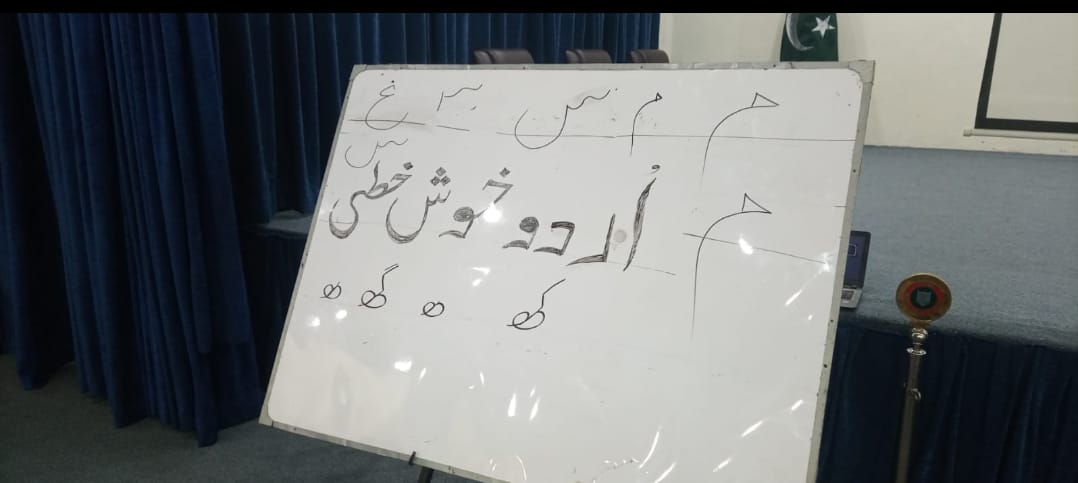 م م س غ
س
م اُردو خوش خطی
کھ ھ گھ ھ